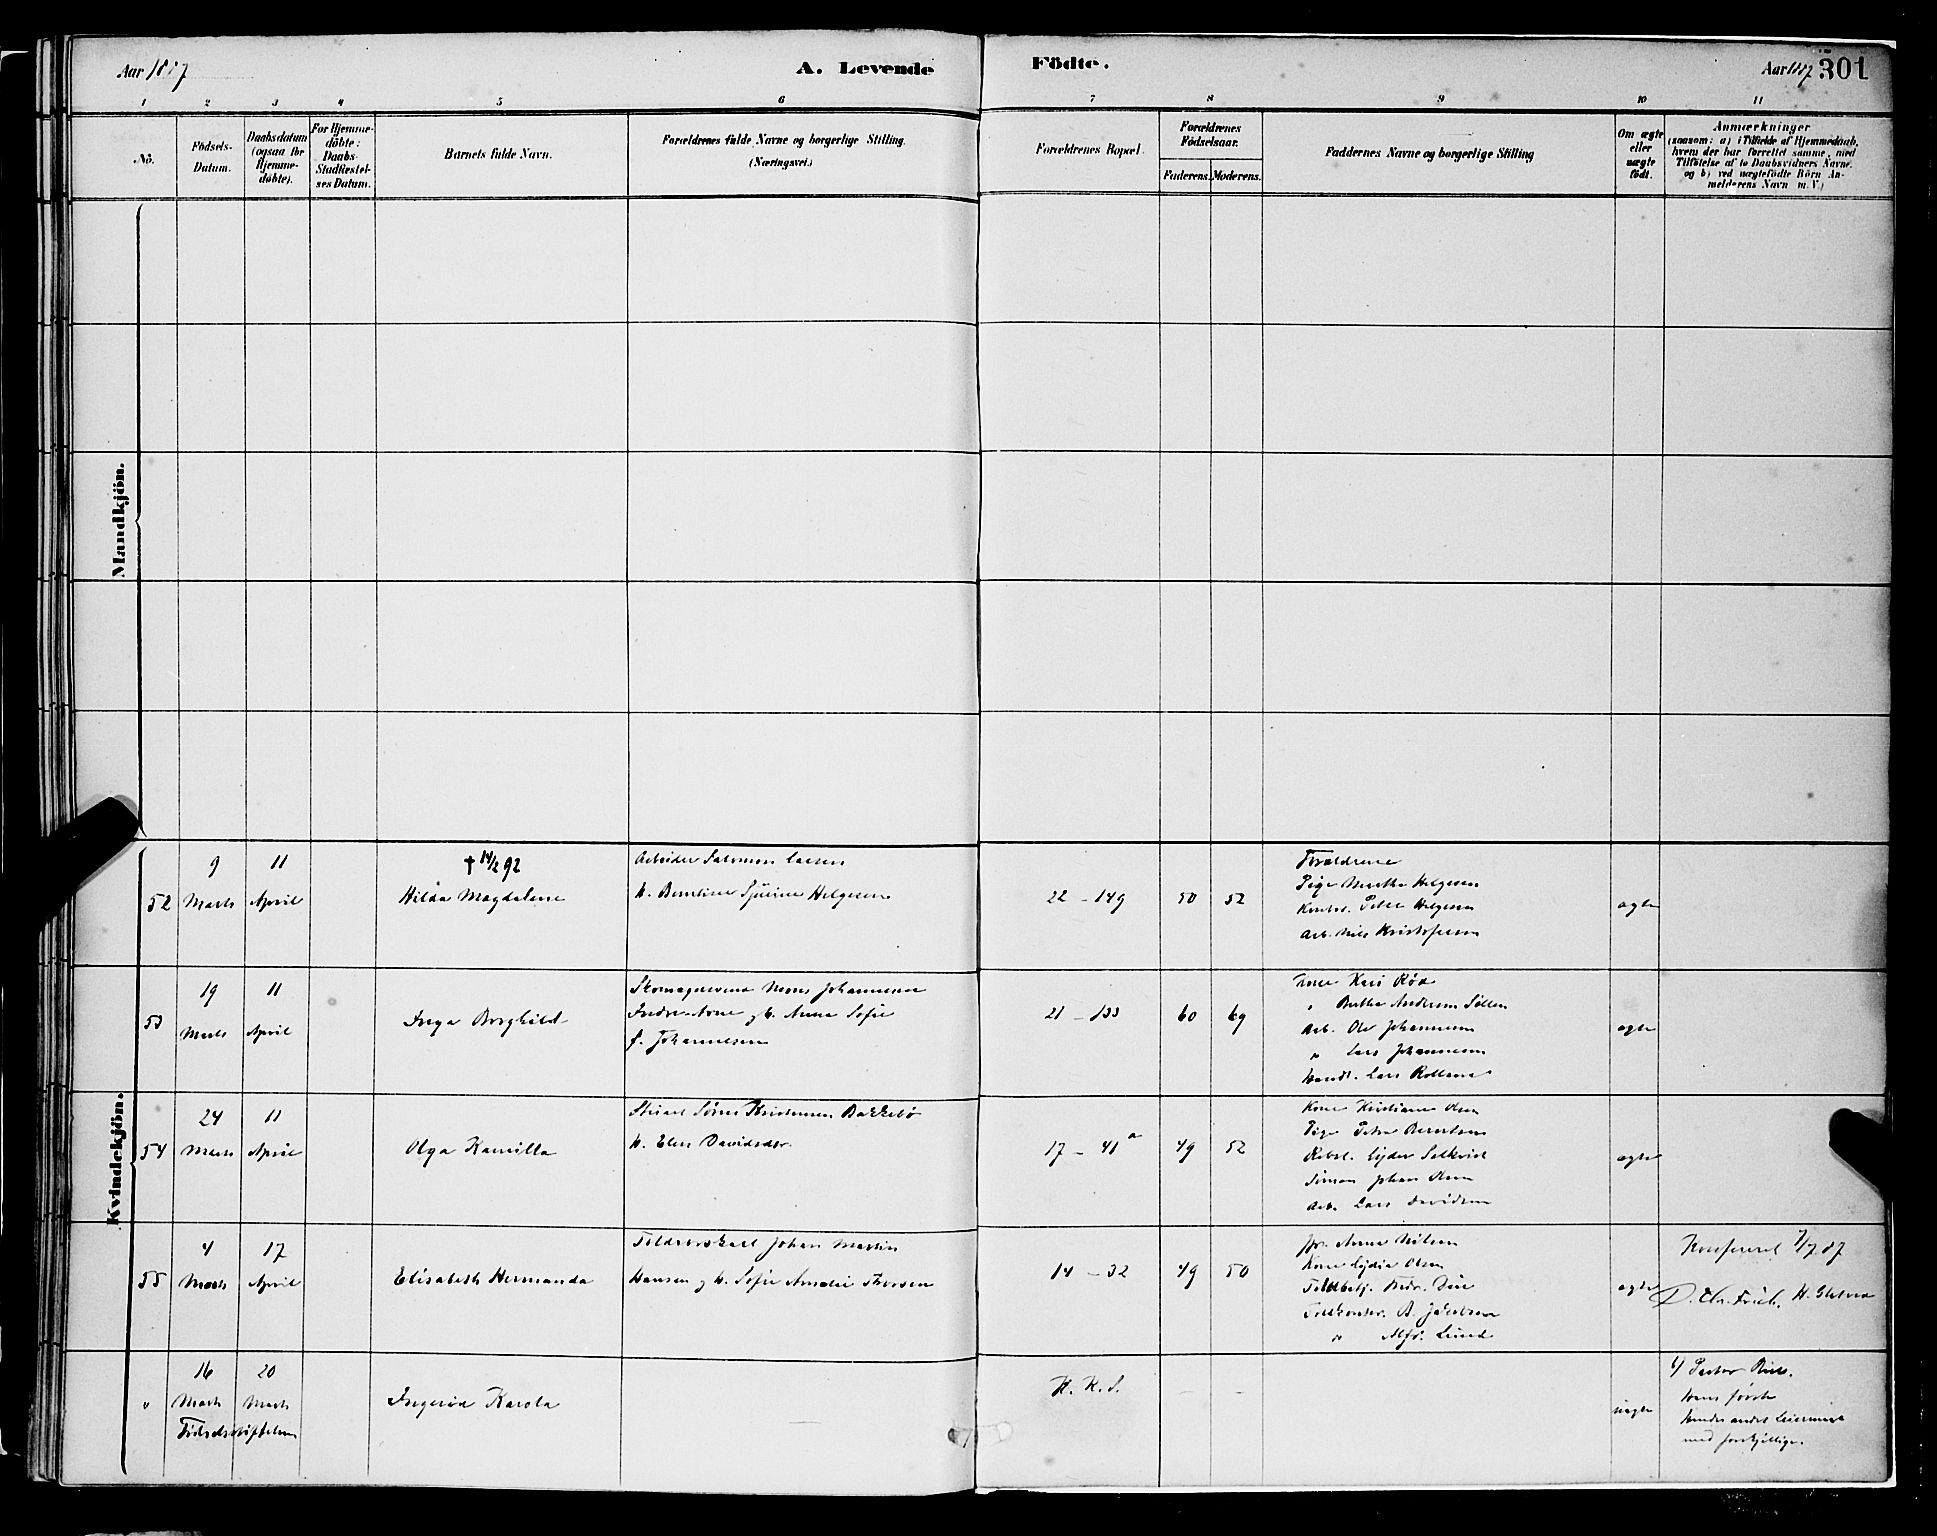 Aar 1887
A. Levende
Födte.
Aar 1887
301
1 2 3 4 5 6 7 8 9 10 11
No.
Födsels-
Datum.
Daabsdatum
(ogsaa for
Hjemme-
döbte).
For Hjemme-
döbte:
Daabs-
Stadfæstel-
ses Datum.
Barnets fulde Navn.
Forældrenes fulde Navne og borgerlige Stilling.
(Næringsvei.)
Forældrenes Bopæl.
Forældrenes
Födselsaar.
Faderens. Moderens.
Faddernes Navne og borgerlige Stilling
Om ægte
eller
uægte
födt.
Anmærkninger
(saasom: a) i Tilfælde af Hjemmedaab,
hvem der har forrettet samme, med
Tilföielse af to Daabsvidners Navne,
og b) ved uægtefödte Börn An-
melderens Navn m. V.)
Mandkjön.
Kvindekjön.
52
9 Marts
11 April
† 14/2 92
Hilda Magdalene
Arbeider Salomon Larsen
h. Berntine Helgesen
22 - 149
50
52
Forældrene
Pige Martha Helgesen
Peter Helgesen
Arb. Nils Kristofersen
ægte
53
19 Marts
11 April
Inga Borghild
Skomagersvend Mons Johannesen
Indre-Arne og h. Anna Sofie
f. Johannesen
21 - 133
60
69
Kone Kari Röd
" Berthe Andersen
Arb. Ole Johannesen
" Lars Johannesen
Handl. Lars
ægte
54
24 Marts
11 April
Olga Kamilla
Stuart Sören Kristensen Bakkebö
h. Elen Davidsdtr.
17 - 41 a
49
52
Kone Kristiane Olsen
Pige Petra Berentsen
Lyder
Simon Johan Olsen
Arb. Lars Davidsen
ægte
55
4 Marts
17 April
Elisabeth Hermanda
Toldrorskarl Johan Martin
Hansen og h. Sofie Amalie Thorsen
14 - 32
49
50
Jfr. Anna Nilsen
Kone Lydia Olsen
Toldbetj. Fredr.
A. Jakobsen
" Alfr. Lund
ægte
Konfereret 7/7 87
D. Chr. Frich. H.
"
16 Marts
20 Marts
Födselsstiftelsen
Ingerid Karola
H. K. S.
- -
uægte
Pastor
Hans förste
hendes andet Leiermaal
med forskjellige.